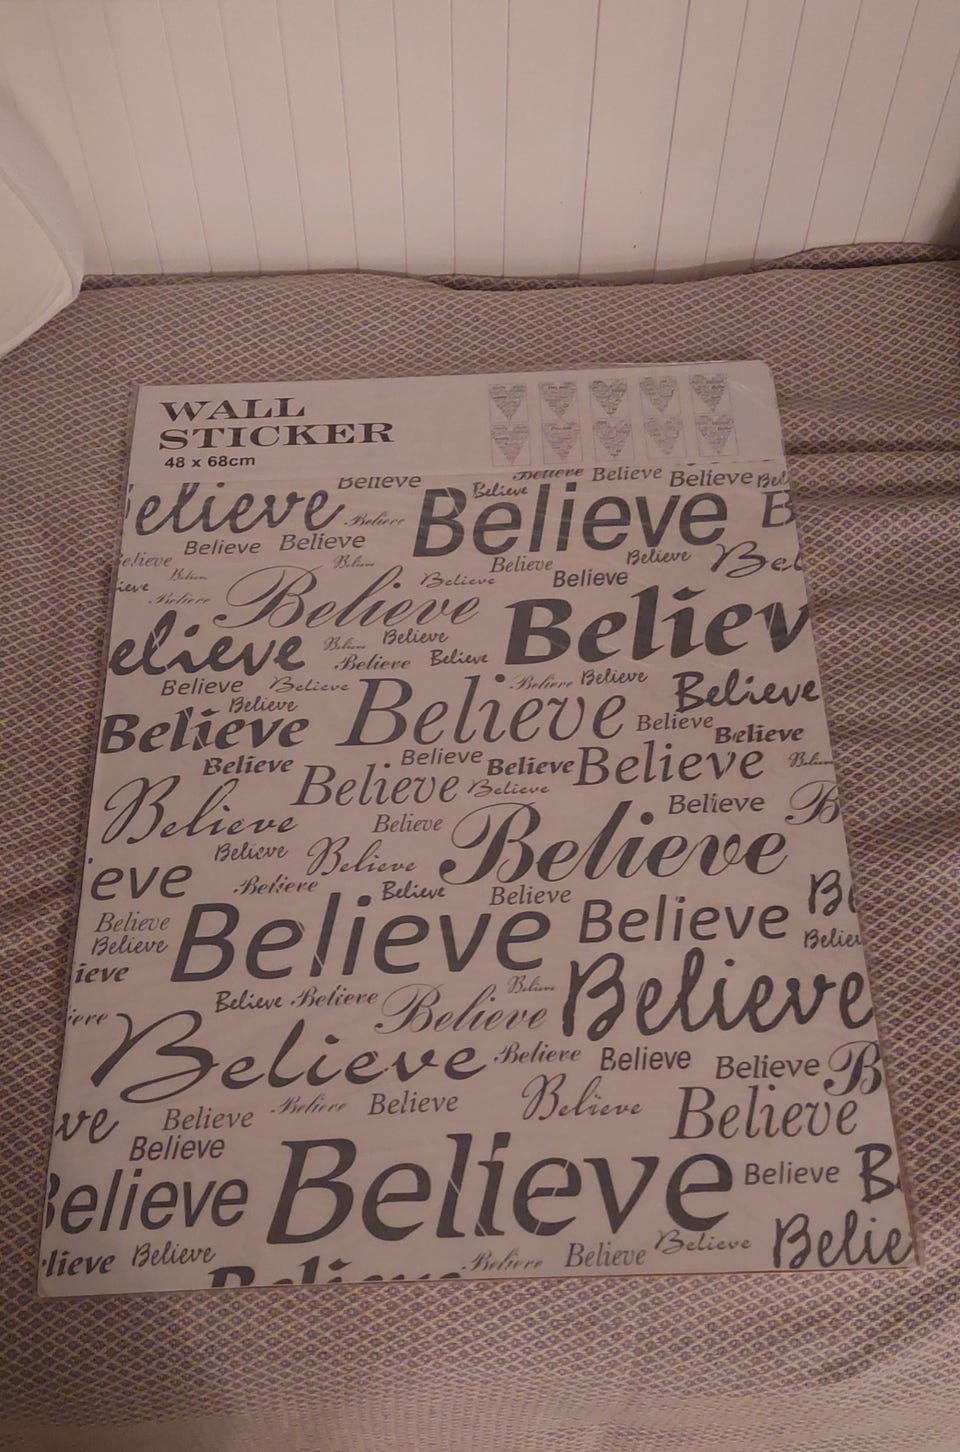 WALL
STICKER
48 x 68cm
Believe Believe Believe Believe Bel
elieve Believe Believe Believe B
Believe Believe
elieve Believe Believe Believe Bel
ieve Believe Believe Believe
Believe Believe Believ
elieve Believe Believe
Believe Believe
Believe Believe Believe Believe Believe
Believe Believe Believe Believe
Believe Believe Believe
Believe Believe Believe Believe Believe
Believe Believe Believe B
Believe Believe Believe Believe
eve Believe Believe Believe B
Believe Believe Believe
Believe Believe
ieve
Believe Believe Believe Believe Believe
iere Believe Believe Believe Believe B
ve Believe Believe Believe Believe Believe
Believe
Believe Believe Believe B
lieve Believe Believe Believe Believe Believe Belie